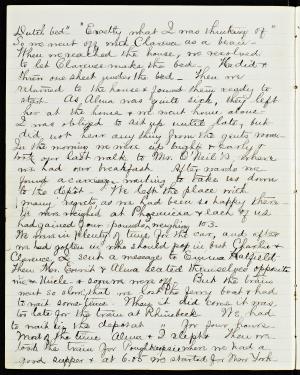 Dutch bed" "Exactly what I was thinking of"
So we went off with Clarence as a bear-
When we reached the house, we resolved
to let Clarence make the bed. Had it
threw one sheet under the bed - Then we
returned to the house & found them ready to
start. As Alma was quite sick, they left
her at the house & we went home alone
I was obliged to sit up until late, but
did not hear any thing from the girls
In the morning we were up bright & early &
took our last walk to Mr. O'Neil's, where
we had our breakfast. After wards we
found a carriage waiting to take us down
to the depot. We left the place with
many regrets as we had been so happy there
We were weighed at Phoenicia & each of us
had gained four pounds, weighing 103.
We were in plenty of time for the car, and after
we had gotten in who should pop in but Charlie &
Clarence, I sent a message to Emma Hatfield
Then Mr. & Alma seated themselves opposite
me & were off. But the train
went so slow that we lost the ferry boat & had
to wait some time. When it did come it was
too late for the train at Rhinebeck. We had
to wait in the depot at " for four hours
Most of the time Alma & I slept. Then we
took the train for Poughkeepsie where we had a
good supper & at 6.05 we started for New York